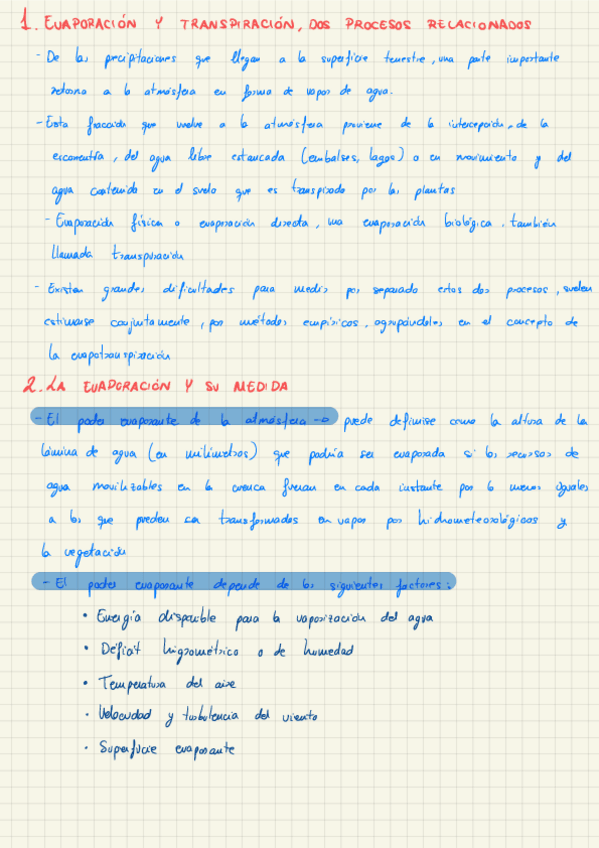 1. EVAPORACIÓN Y TRANSPIRACIÓN, DOS PROCESOS RELACIONADOS
- De las precipitaciones que llegan a la superficie terrestre, una parte importante
retorna a la atmósfera en forma de vapor de agua.
- Esta fracción que vuelve a la atmósfera proviene de la intercepción, de la
escorrentía, del agua libre estancada (embalses, lagos) o en movimiento y del
agua contenida en el suelo que es transpirada por las plantas
- Evaporación física o evaporación directa, una evaporación biológica. también
llamada transpiración
- Existen grandes dificultades para medir por separado estos dos procesos, suelen
estimarse conjuntamente, por métodos empíricos, agrupándoles en el concepto de
la evapotranspiración
2. LA EVAPORACIÓN Y SU MEDIDA
- El poder evaporante de la atmósfera → puede definirse como la altura de la
lámina de agua (en milímetros) que podría ser evaporada si los recursos de
agua movilizables en la cuenca fueran en cada instante por lo menos iguales
a los que pueden ser transformados en vapor por hidrometeorológicos y
la vegetación
- El poder evaporante depende de los siguientes factores:
• Energía disponible para la vaporización del agua
• Déficit higrométrico o de humedad
• Temperatura del aire
• Velocidad y turbulencia del viento
• Superficie evaporante